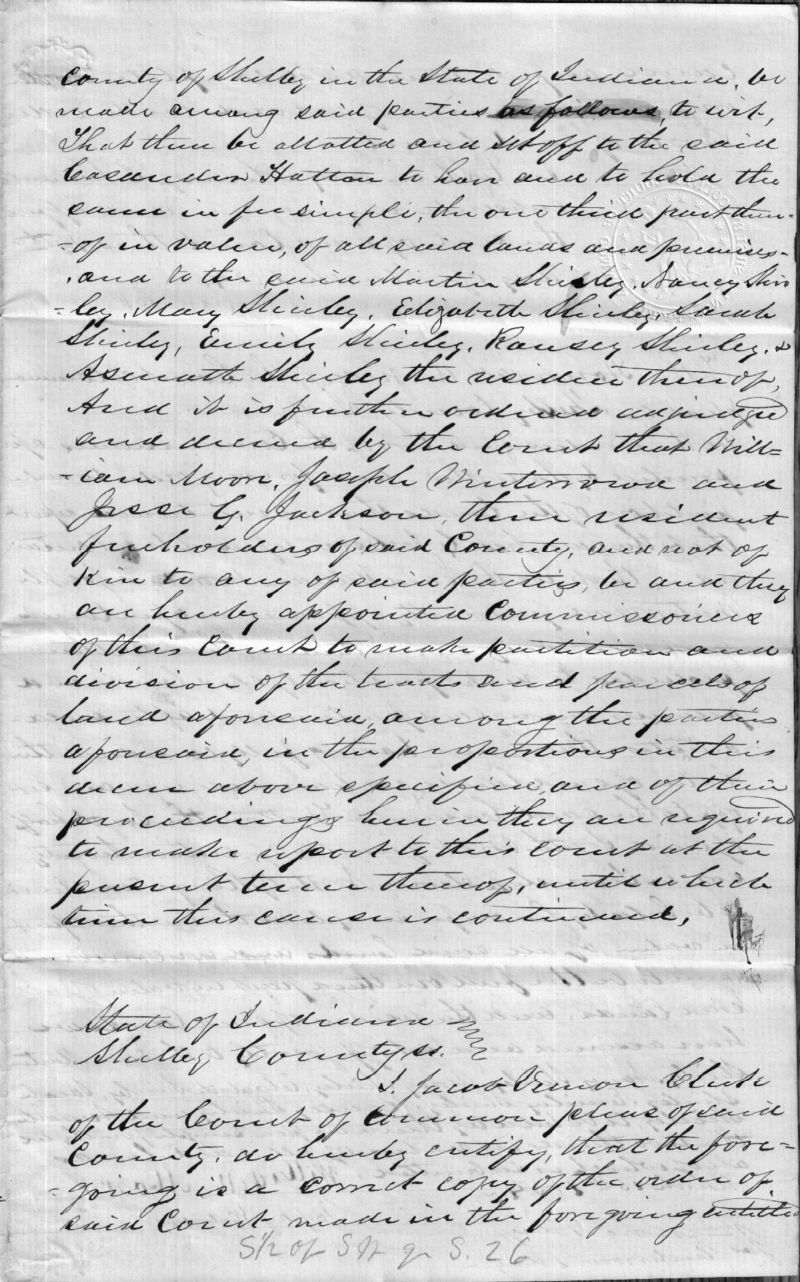 County of Shelby in the State of Indiana, be
made among said parties as follows, to wit,
That there be allotted and set off to the said
Casander Hatton to have and to hold the
same in fee simple, the one third part there-
-of in value, of all said lands and premises-
, and to the said Martin Shirley, Nancy Shir
-ley, Mary Shirley, Elizabeth Shirley, Sarah
Shirley, Emily Shirley, Ransey Shirley, &
Asenath Shirley the residue thereof,
And it is further ordered adjudged
and decreed by the Court that Will-
-iam Moore, Joseph Winterrowd and
Jesse G. Jackson, three resident
freeholders of said County, and not of
Kin to any of said parties, be and they
are hereby appointed Commissoners
of this Court to make partition and
division of the tracts and parcels of
land aforesaid, among the parties
aforesaid, in the proportions in this
decree above specified, and of their
proceedings herein they are required
to make report to this Court at the
present term thereof, until which
time this cause is continued,
State of Indiana
Shelby County, ss.
I, Jacob Vernon Clerk
of the Court of Common pleas of said
County, do hereby certify, that the fore-
-going is a correct copy of the order of
said Court made in the foregoing entitled
S 1/2 of S W qr S. 26